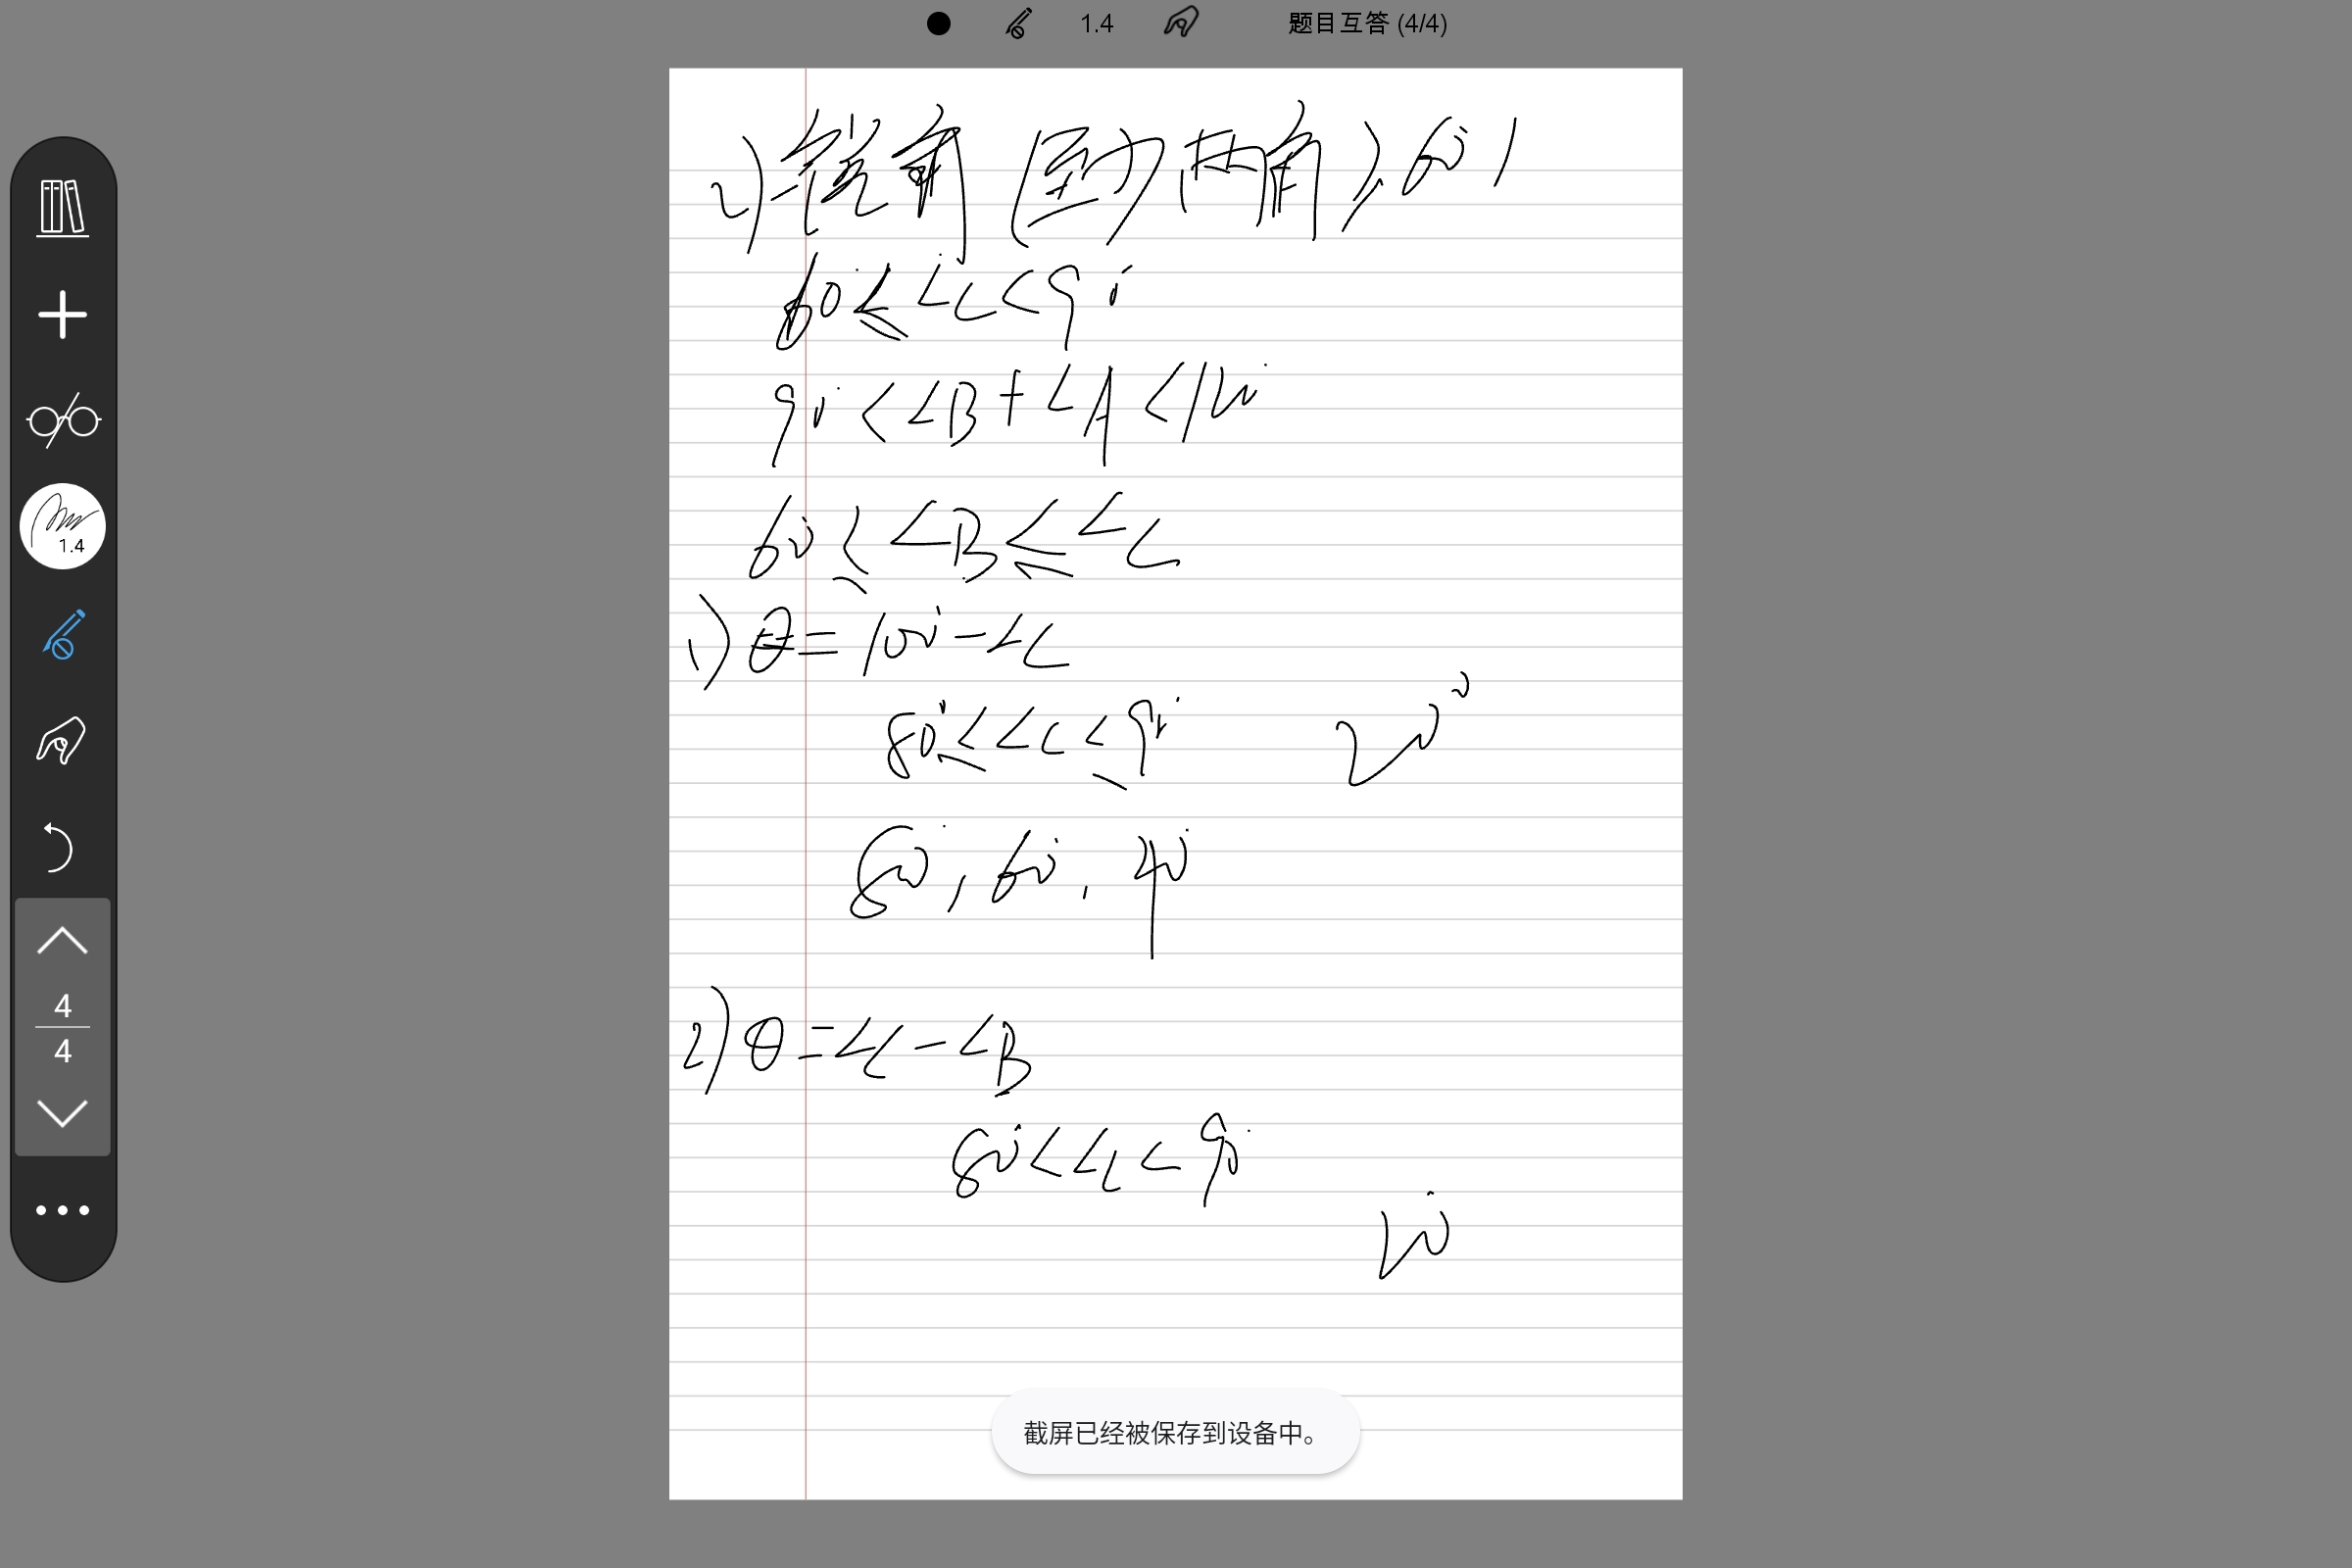 1.4
题目互答 (4/4)
1.4
4
4
2) 锐角 (至少两角 ≥ 60°)
60° ≤ ∠C < 90°
90° < ∠B + ∠A < 120°
60° ≤ ∠B ≤ ∠C
1) θ = 100° - ∠C
80° ≤ ∠C ≤ 90°
20°
80°, 60°, 40°
2) θ = ∠C - ∠B
80° < ∠C < 90°
20°
截屏已经被保存到设备中。